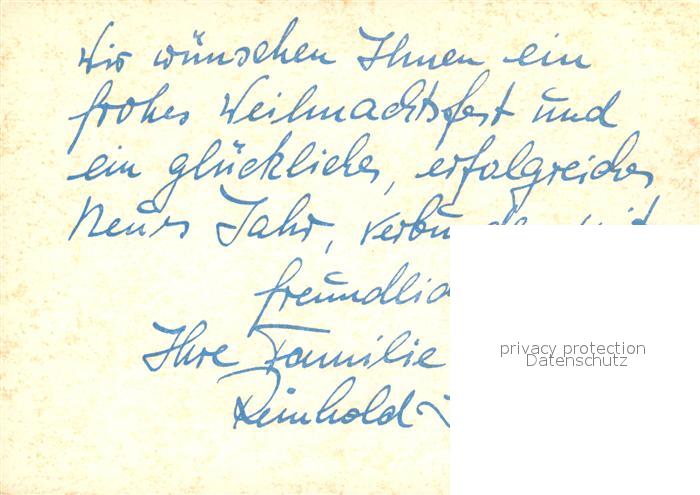 Wir wünschen Ihnen ein
frohes Weihnachtsfest und
ein glückliches, erfolgreiches
Neues Jahr, verbunden mit
Ihre Familie
Reinhold
privacy protection
Datenschutz